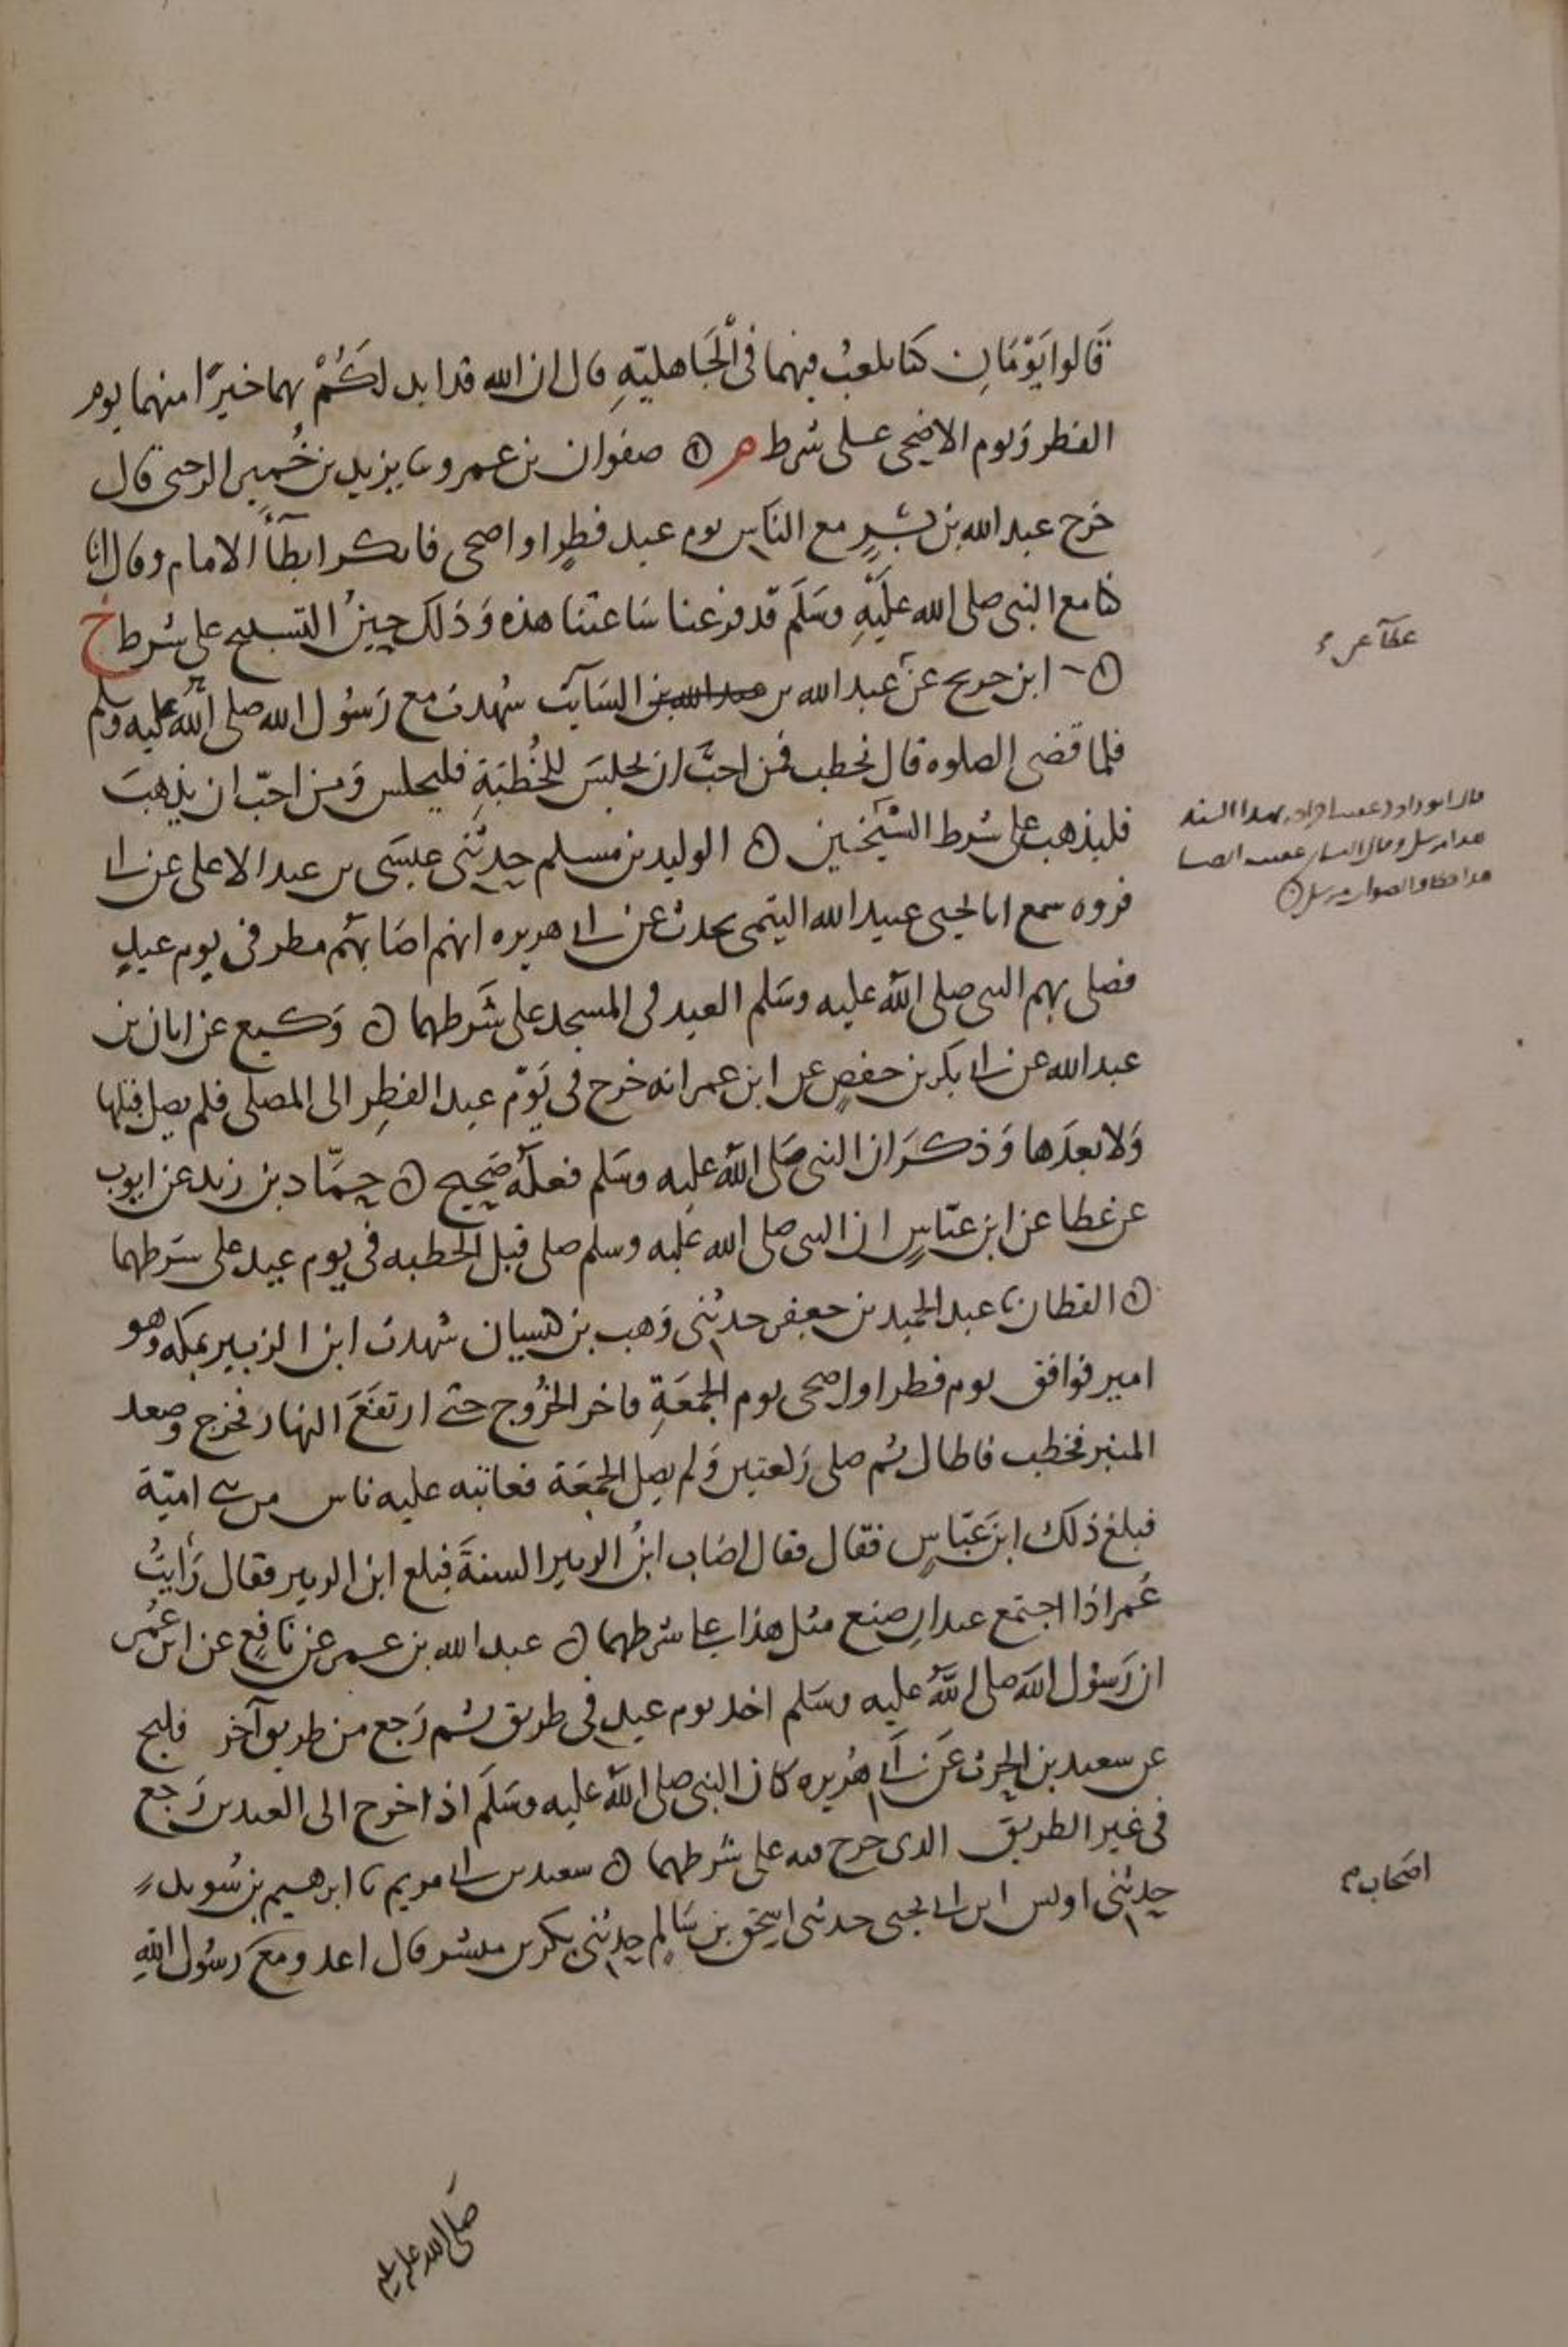 قَالوا يَوْمَانِ كنا نلعبُ فيهما فى الْجَاهليّهِ قال ان الله قد ابدلكُمْ بهما خيرًا منهما يوم
الفطر وَيوم الاضحى على شرط م ۞ صفوان بن عمرو نا يزيد بن خُمير الرحبى قال
خرج عبد الله بن بُسْرٍ مع الناس يوم عيد فطرٍ او اضحى فانكر ابطآءَ الامام وقال انا
كنا مع النبى صلى الله عليهِ وسَلم قد فرغنا سَاعتنا هذه وَذلك حينُ التسبيح على شرط خ
۞ ابن جريج عن عبد الله بن السَايب شهدت مع رَسُول الله صلى الله عليه وسلم
عطآ عن
فلما قضى الصلوه قال نخطب فمن احبَّ ان يجلسَ للخُطبَةِ فليجلس وَمن احبّ ان يذهبَ
فليذهب على شرط الشيخين ۞ الوليد بن مسلم حدثنى عيسَى بن عبد الاعلى عن ابى
قال ابو داود عقب ايراده بهذا السند
هذا مرسل وقال النسائى
هذا خطا والصواب مرسل ۞
فروه سمع ابا يحيى عبيد الله التيمى يحدث عن ابى هريره انهم اصَابهم مطر فى يوم عيدٍ
فصلى بهم النبى صلى الله عليه وسَلم العيد فى المسجد على شَرطهما ۞ وَكيع عن ابان بن
عبد الله عن ابى بكر بن حفصٍ عن ابن عمر انه خرج فى يَوْم عيد الفطِر الى المصلى فلم يصل قبلها
وَلا بعدَها وَذكرَ ان النبى صَلى الله عليه وسَلم فعلهُ صَحيح ۞ حمّاد بن زيد عن ايوب
عن عطا عن ابن عبّاسٍ ان النبى صلى الله عليه وسلم صلى قبل الخطبه فى يوم عيد على شرطهما
۞ القطان نا عبد الحميد بن جعفر حدثنى وَهب بن كيسان شهدت ابن الزبير بمكه وهو
امير فوافق يوم فطر او اضحى يوم الجمعَةِ فاخر الخرُوج حتى ارتفَعَ النهار فخرج وصعد
المنبر فخطب فاطال ثم صلى رَكعتين وَلم يصل الجمعَة فعاتبه عليه ناس من بنى اميّة
فبلغ ذلك ابن عبّاسٍ فقال فقال اصَاب ابنُ الزبير السنةَ فبلغ ابن الزبير فقال رَأيتُ
عُمر اذا اجتمع عيدان صنع مثل هذا على شرطهما ۞ عبد الله بن عمر عن نَافعٍ عن ابن عُمر
ان رَسُول الله صلى اللهُ عليه وسَلم اخذ يوم عيدٍ فى طريق ثم رَجع من طريق آخر فليح
عن سعيد بن الحرث عَن ابى هُريره كان النبى صلى اللهُ عليه وسَلَم اذا خرج الى العيدين رَجع
فى غير الطريق الذى خرج فيه على شرطهما ۞ سعيد بن ابى مريم نا ابرهيم بن سُويد
حدثنى اويس ابن ابى يحيى حدثنى اسحق بن سَالم حدثنى بكر بن مبشر قال اغدو مع رسُول اللهِ
اصَحاب
صَلى الله عليه وسلم